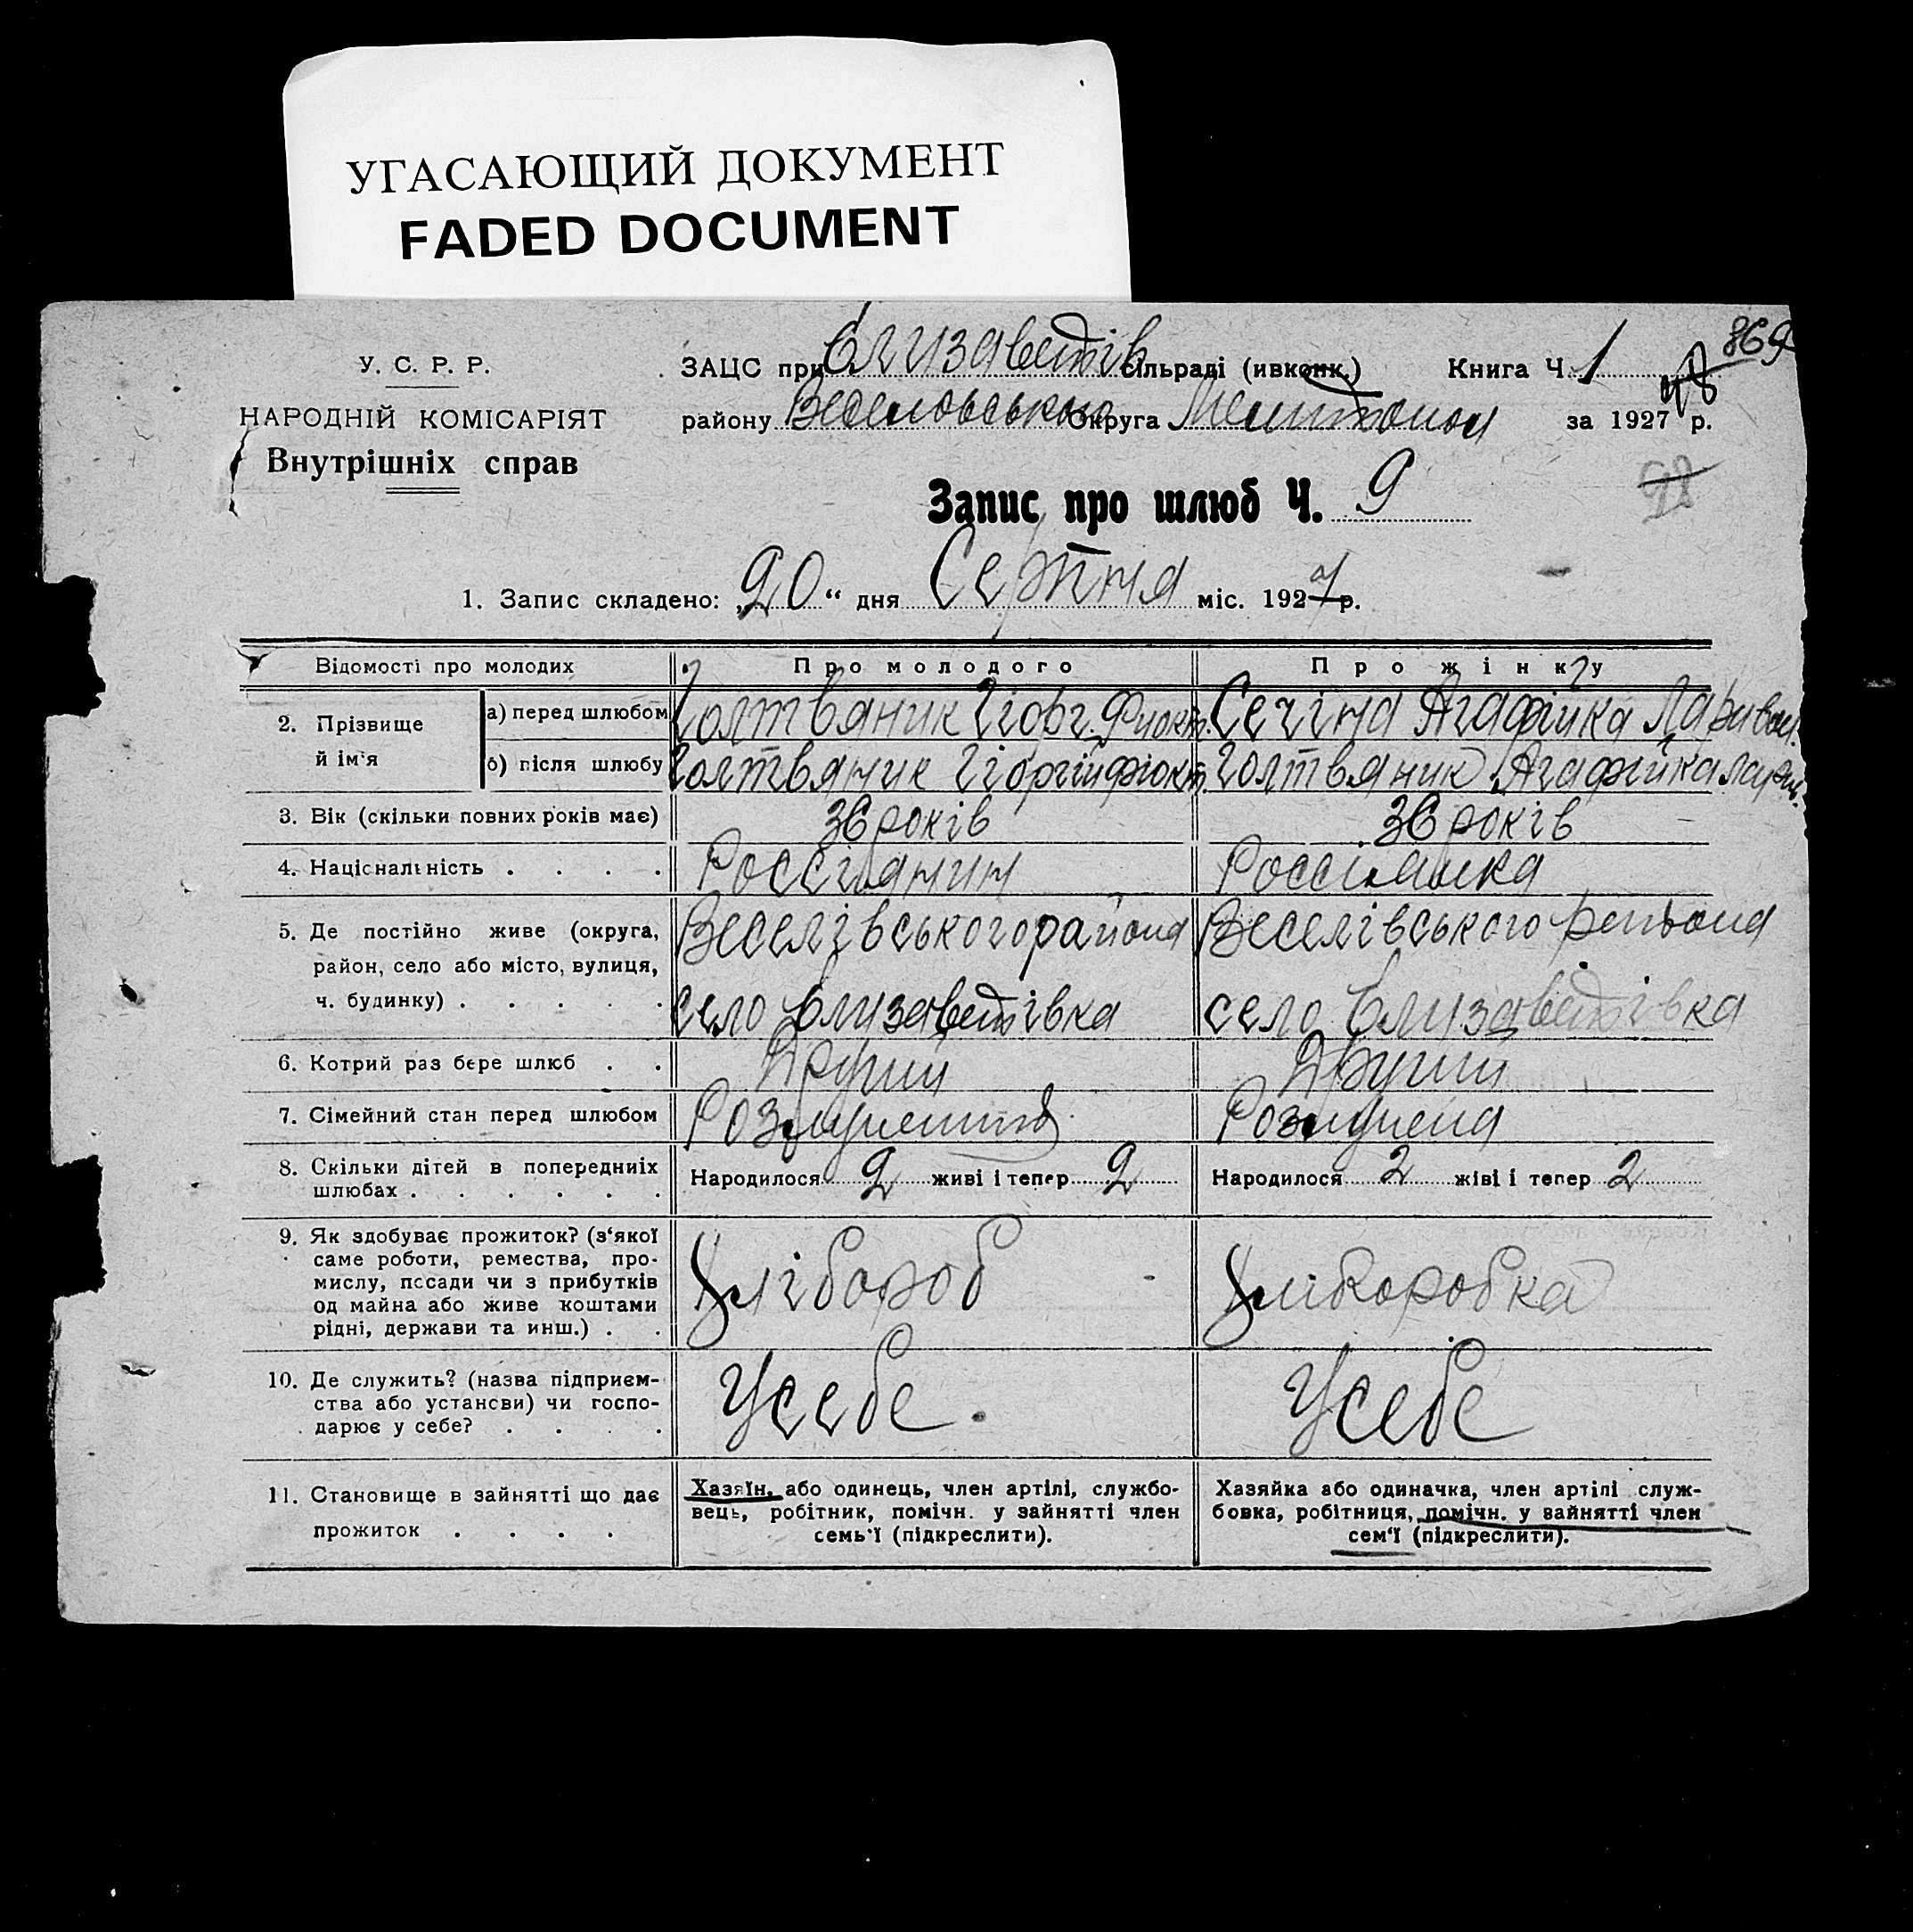 УГАСАЮЩИЙ ДОКУМЕНТ
FADED DOCUMENT
869
У. С. Р. Р.
НАРОДНІЙ КОМІСАРІЯТ
Внутрішніх справ
ЗАЦС при Єлизаветів сільраді (ивконк.) Книга Ч. 1
району Веселовською Округа Мелитопол за 1927 р.
Запис про шлюб Ч. 9
1. Запис складено: „20“ дня Серпня міс. 1927 р.
Відомості про молодих Про молодого Про жінку
2. Прізвище й ім‘я
а) перед шлюбом Голтвяник Гіорг. Фиокт. Сечіна Агафійка Ларивон.
б) після шлюбу Голтвяник Гіоргій Фіокт. Голтвяник Агафійка Ларив.
3. Вік (скільки повних років має) 36 років 36 років
4. Національність . . . . Россіянин Россіянка
5. Де постійно живе (округа, район, село або місто, вулиця, ч. будинку) . . . . .
Веселівського района Веселівського района
село Єлизаветівка село Єлизаветівка
6. Котрий раз бере шлюб . . Другий Другий
7. Сімейний стан перед шлюбом Розлучена
8. Скільки дітей в попередниіх шлюбах . . . . . .
Народилося 2 живі і тепер 2 Народилося 2 жіві і тепер 2
9. Як здобуває прожиток? (з‘якої
саме роботи, ремества, про-
мислу, посади чи з прибутків
од майна або живе коштами
рідні, держави та инш.) . .
Хлібороб Хліборобка
10. Де служить? (назва підприєм-
ства або установи) чи госпо-
дарює у себе? . . . .
Усебе. Усебе
11. Становище в зайнятті що дає
прожиток . . . .
Хазяїн, або одинець, член артілі, службо-
вець, робітник, помічн. у зайнятті член
семь‘ї (підкреслити).
Хазяйка або одиначка, член артілі служ-
бовка, робітниця, помічн. у зайнятті член
сем‘ї (підкреслити).